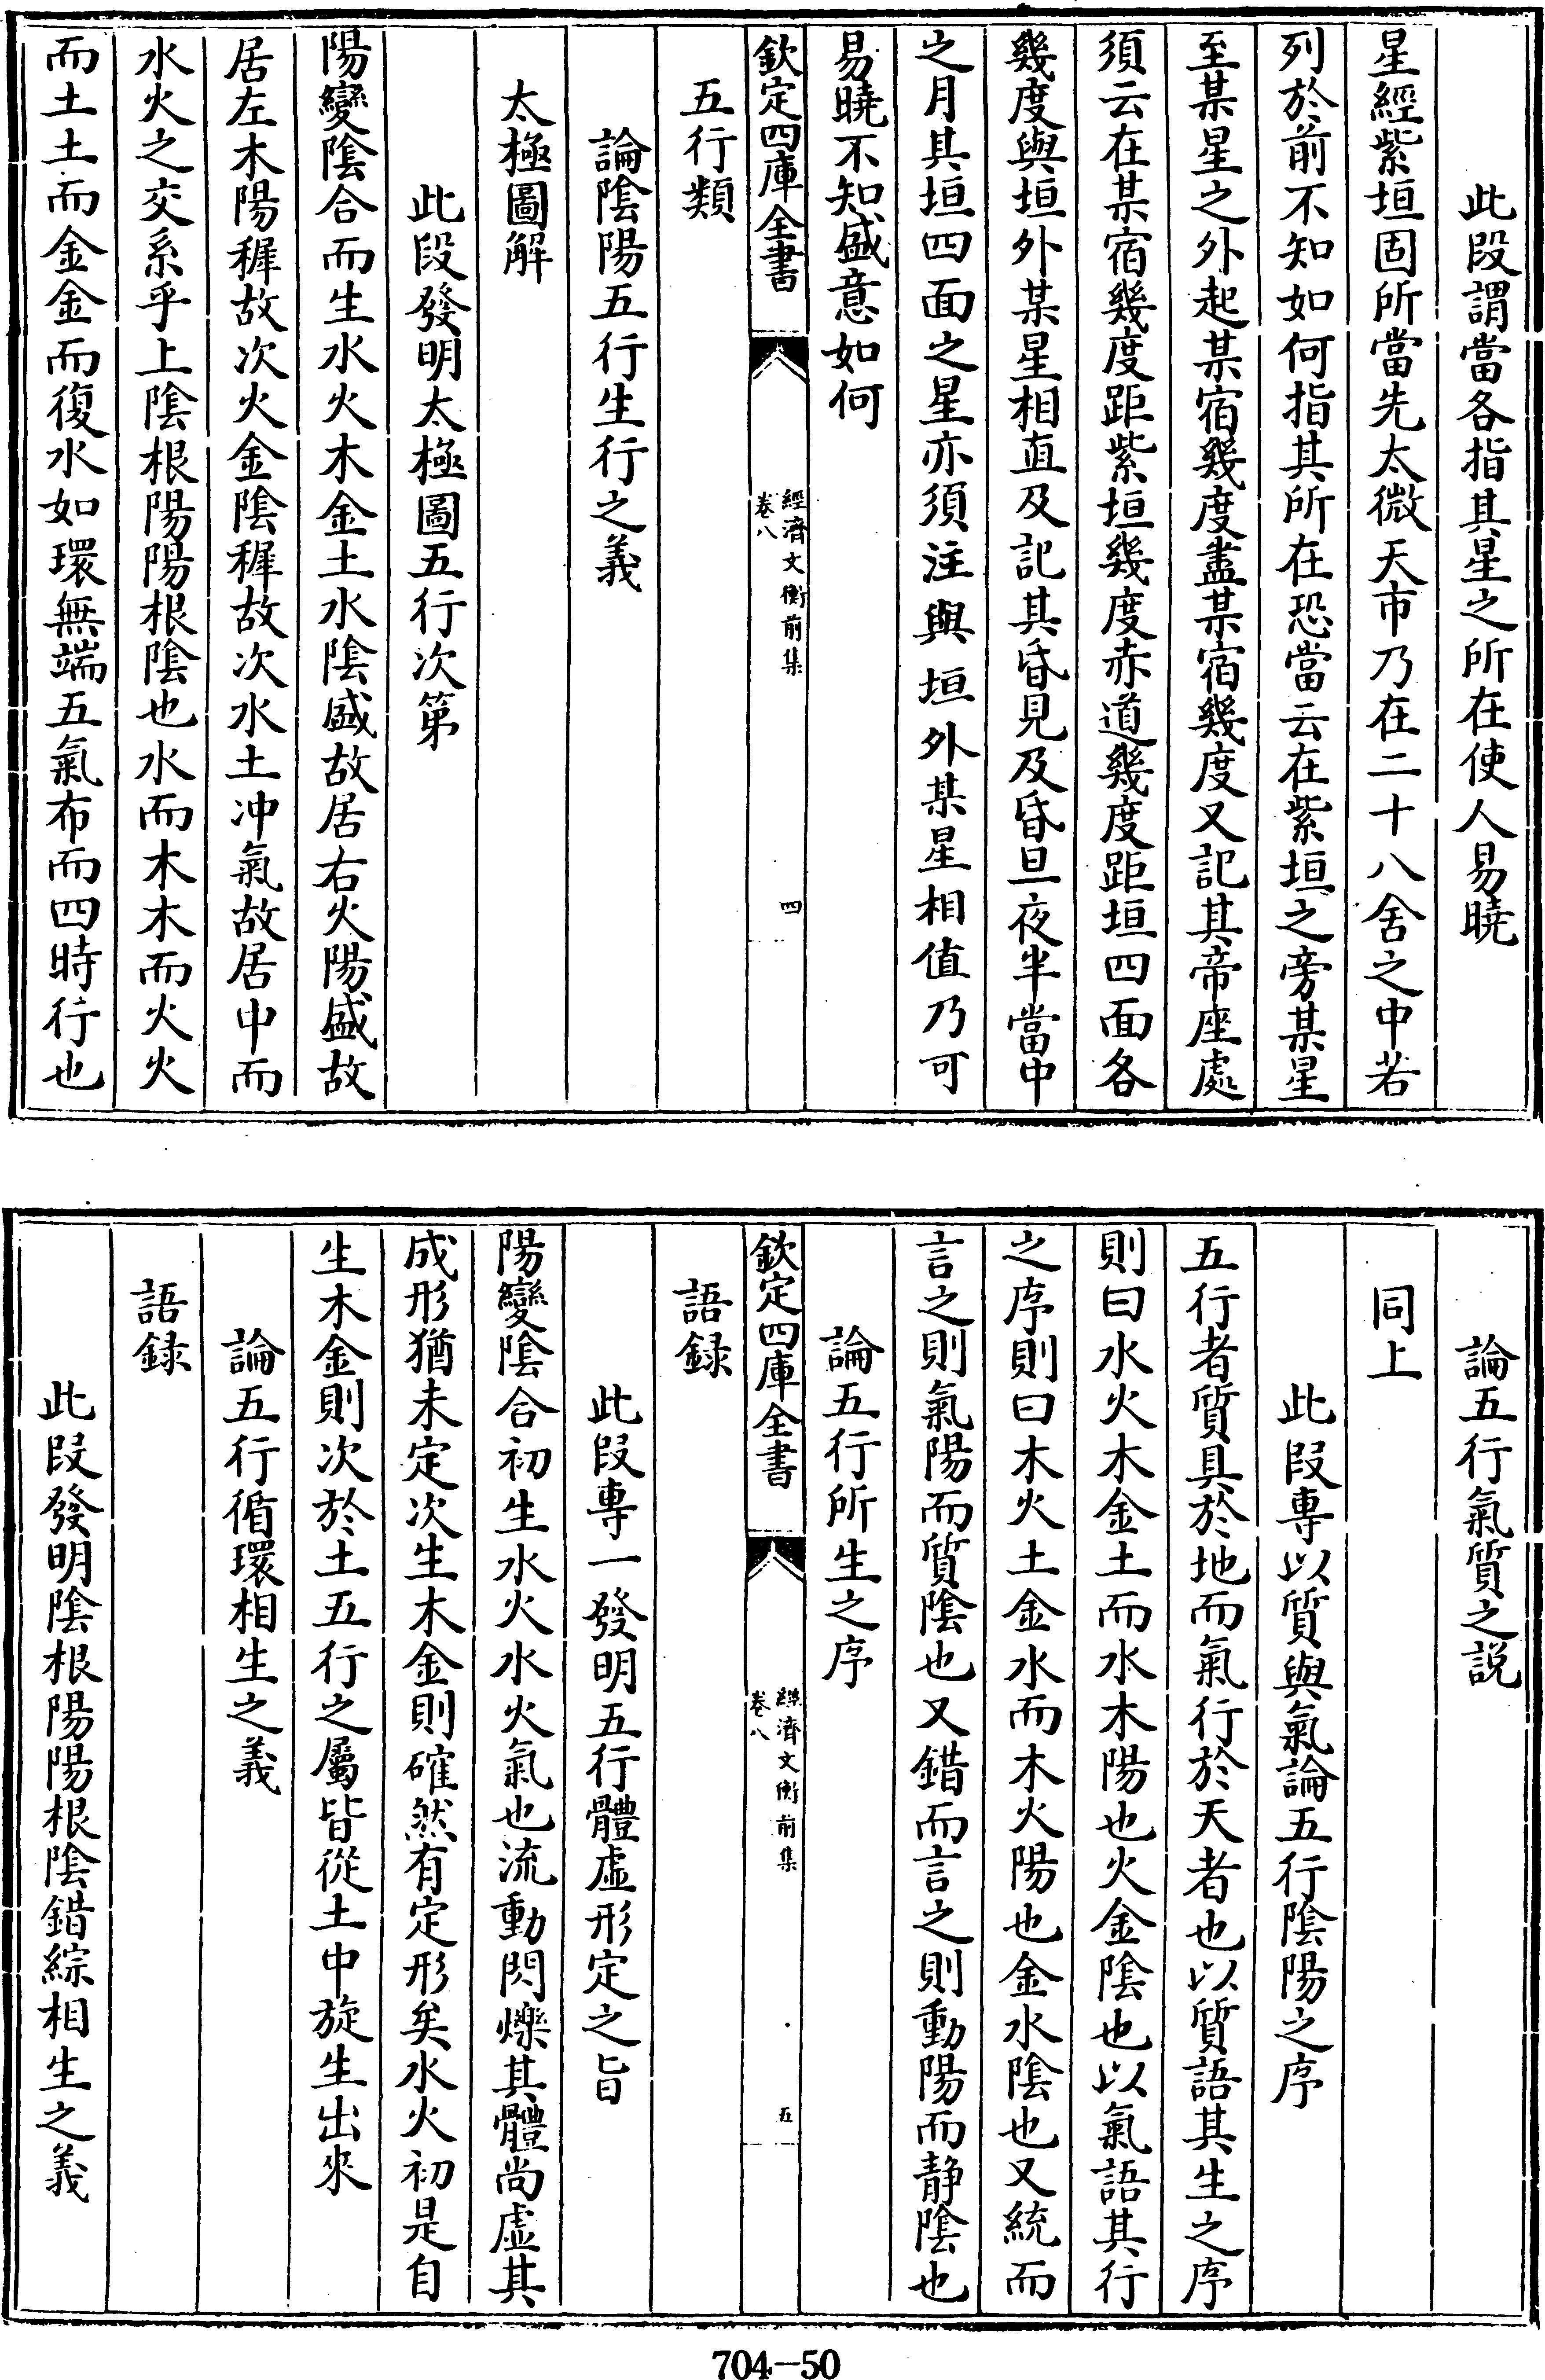 此段謂當各指其星之所在使人易曉
星經紫垣固所當先太微天市乃在二十八舍之中若
列於前不知如何指其所在恐當云在紫垣之旁某星
至某星之外起某宿幾度盡某宿幾度又記其帝座處
須云在某宿幾度距紫垣幾度赤道幾度距垣四面各
幾度與垣外某星相直及記其昏見及昏旦夜半當中
之月其垣四面之星亦須注與垣外某星相值乃可
易曉不知盛意如何
欽定四庫全書
經濟文衡前集
卷八
四
五行類
論陰陽五行生行之義
太極圖解
此段發明太極圖五行次第
陽變陰合而生水火木金土水陰盛故居右火陽盛故
居左木陽穉故次火金陰穉故次水土冲氣故居中而
水火之交系乎上陰根陽陽根陰也水而木木而火火
而土土而金金而復水如環無端五氣布而四時行也
論五行氣質之說
同上
此段專以質與氣論五行陰陽之序
五行者質具於地而氣行於天者也以質語其生之序
則曰水火木金土而水木陽也火金陰也以氣語其行
之序則曰木火土金水而木火陽也金水陰也又統而
言之則氣陽而質陰也又錯而言之則動陽而静陰也
論五行所生之序
欽定四庫全書
經濟文衡前集
卷八
五
語録
此段專一發明五行體虛形定之旨
陽變陰合初生水火水火氣也流動閃爍其體尚虛其
成形猶未定次生木金則確然有定形矣水火初是自
生木金則次於土五行之屬皆從土中旋生出來
論五行循環相生之義
語録
此段發明陰根陽陽根陰錯綜相生之義
704-50